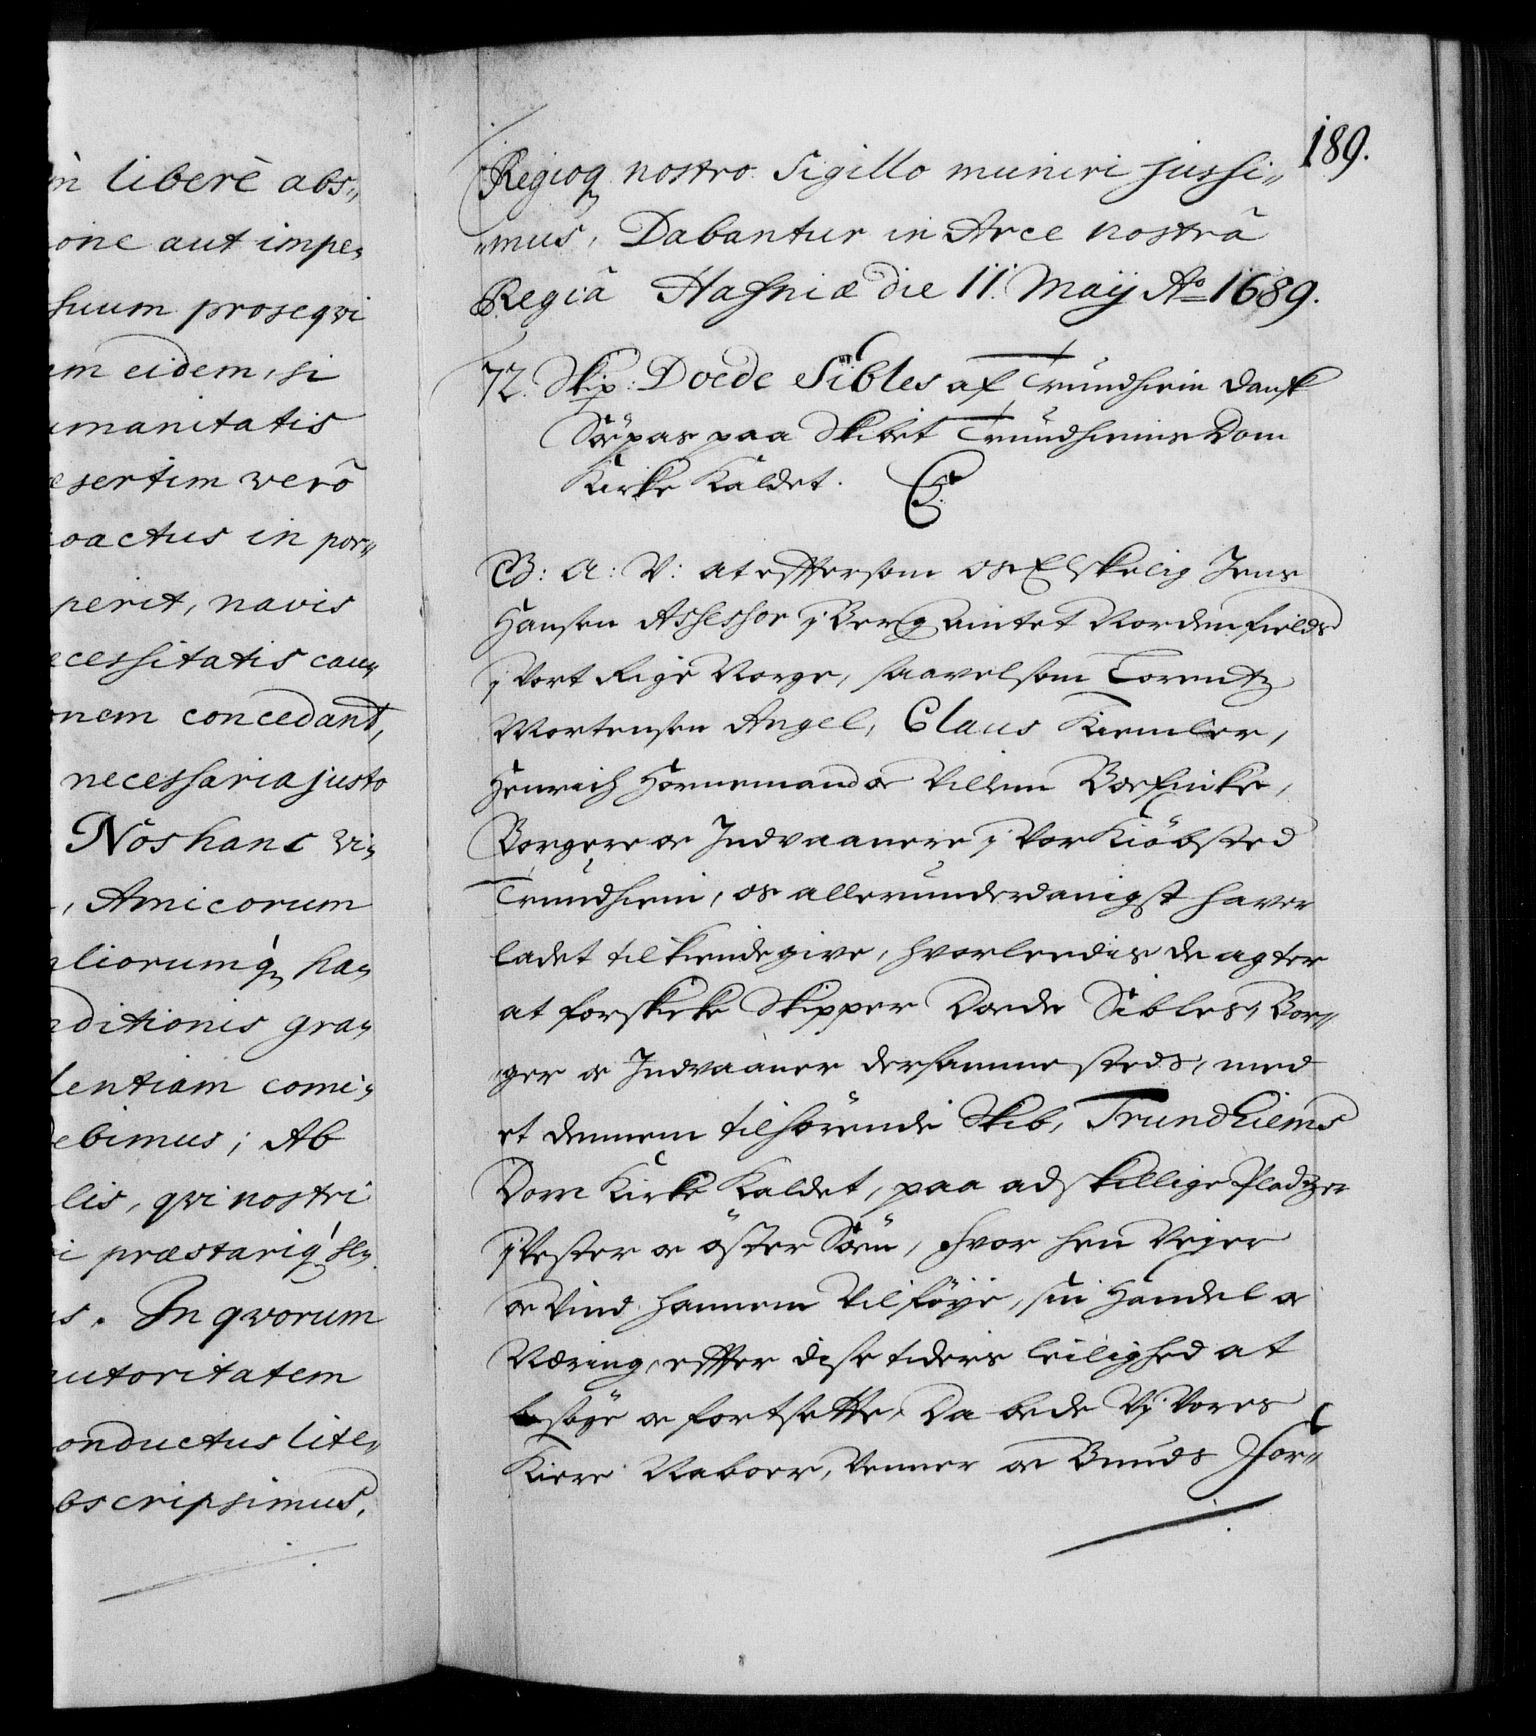 n liberè abs„
one aut impe„
suum proseqvi
m eidem, si
manitatis
esertim verò
oactus in por„
perit, navis
ecessitatis cau„
nem concedant,
necessaria justo
Nos hanc vi„
, Amicorum
liorumq́ ha„
ditionis gra„
lentiam comi„
ebimus; Ab
lis, qvi nostri
i præstariq́ se„
s. In qvorum
autoritatem
onductus lite„
bscripsimus.
189.
Regioq nostro Sigillo muniri jussi„
„mus, Dabantur in Arce nostrâ
Regiâ Hafniæ die 11. Maij Ao 1689.
72. Skip: Doede Sibles af Trundhiem dansk
Søepas paa Skibet Trundhiems Dom
Kirke Kaldet. C5.
G: A: V: at effter som os Elskelig Jens
Hansen Assessor j Berg Amtet Nordenfields
j Vort Rige Norge, saavelsom Lorentz
Mortensen Angel, Claus Kiemler,
Henrich Hornemand oc Villem Boefinke,
Borgere oc Indvaanere j Vor Kiöbsted
Trundhiem, os allerunderdanigst haver
ladet tilkiendegive, hvorledis de agter
at forskicke Skipper Doede Sibles, Bor„
ger oc Indvaaner dersammesteds, med
et dennem tilhörende Skib, Trundhiems
Dom Kirke Kaldet, paa adskillige Pladtzer
j Vester oc öster Söen, hvor hen Vejer
oc Vind hannem Vilföye, sin Handel oc
Næring, effter disse tiders leilighed at
søge oc fortsette, Da bede Vj Vores
Kiere Naboer, Venner oc Bunds For„